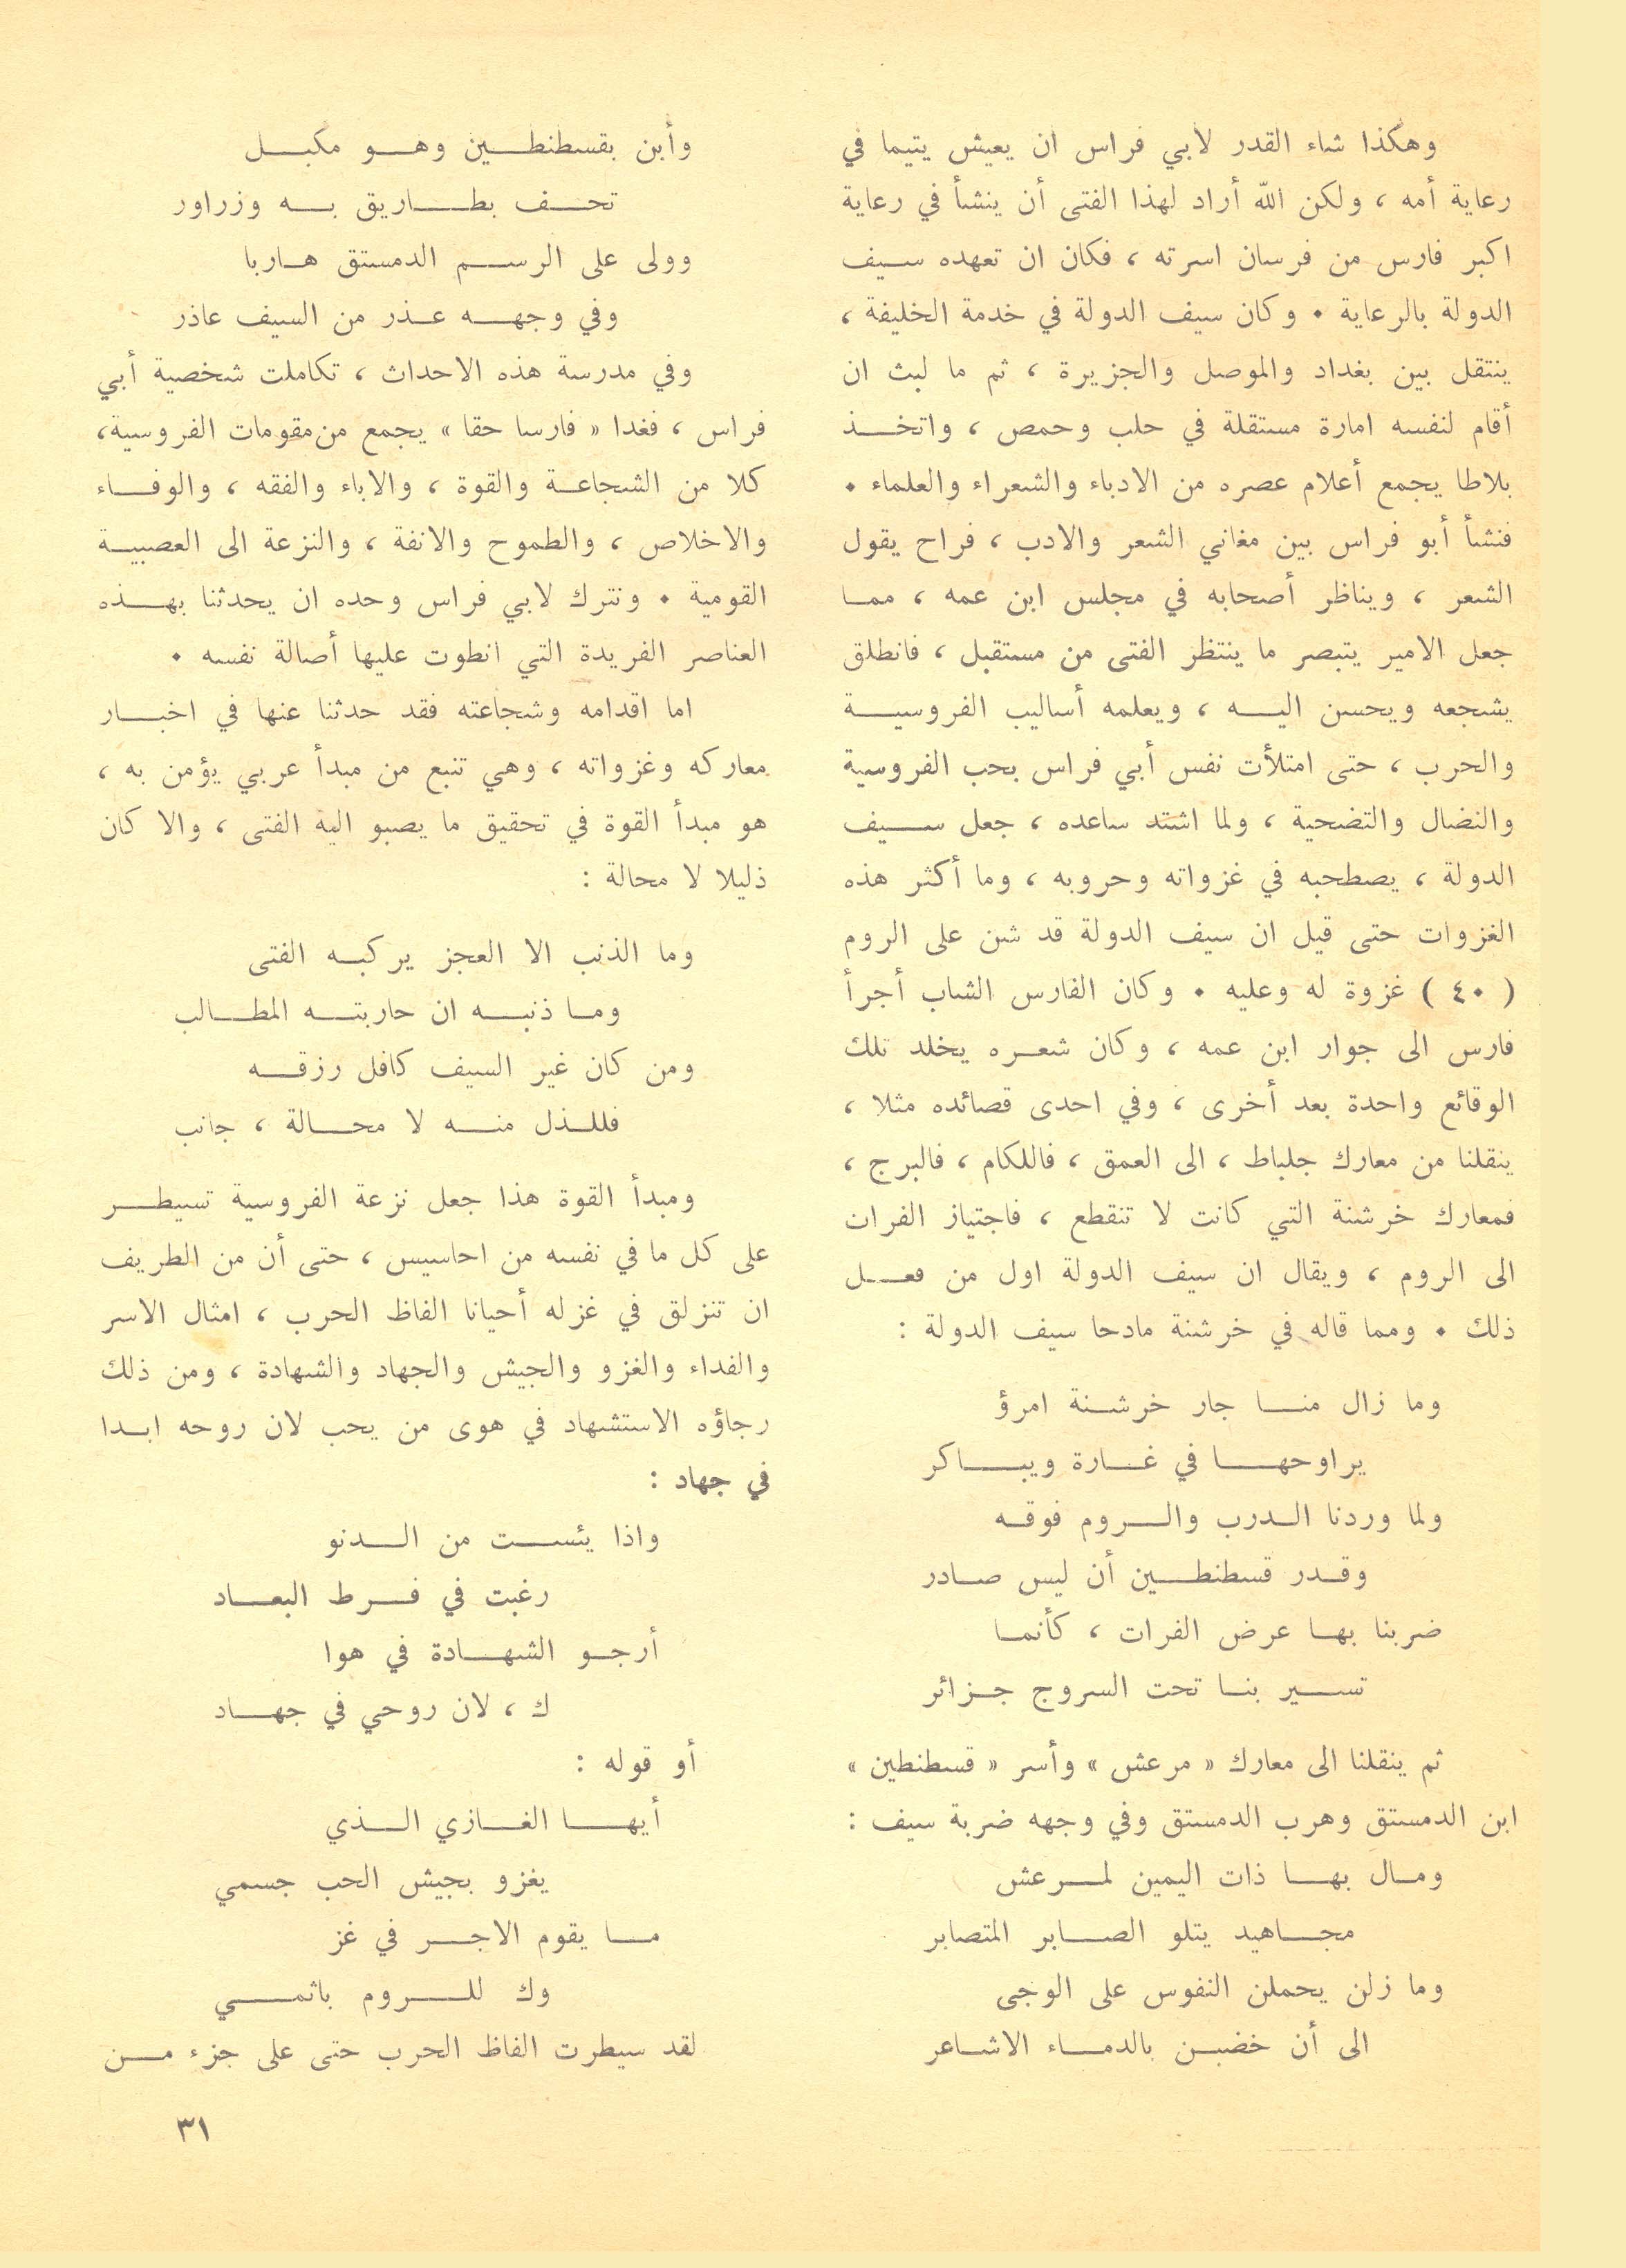 وهكذا شاء القدر لابي فراس ان يعيش يتيما في
رعاية أمه ، ولكن الله أراد لهذا الفتى أن ينشأ في رعاية
اكبر فارس من فرسان اسرته ، فكان ان تعهده سيف
الدولة بالرعاية . وكان سيف الدولة في خدمة الخليفة ،
ينتقل بين بغداد والموصل والجزيرة ، ثم ما لبث ان
أقام لنفسه امارة مستقلة في حلب وحمص ، واتخذ
بلاطا يجمع أعلام عصره من الادباء والشعراء والعلماء .
فنشأ أبو فراس بين مغاني الشعر والادب ، فراح يقول
الشعر ، ويناظر أصحابه في مجلس ابن عمه ، مما
جعل الامير يتبصر ما ينتظر الفتى من مستقبل ، فانطلق
يشجعه ويحسن اليه ، ويعلمه أساليب الفروسية
والحرب ، حتى امتلأت نفس أبي فراس بحب الفروسية
والنضال والتضحية ، ولما اشتد ساعده ، جعل سيف
الدولة ، يصطحبه في غزواته وحروبه ، وما أكثر هذه
الغزوات حتى قيل ان سيف الدولة قد شن على الروم
( ٤٠ ) غزوة له وعليه . وكان الفارس الشاب أجرأ
فارس الى جوار ابن عمه ، وكان شعره يخلد تلك
الوقائع واحدة بعد أخرى ، وفي احدى قصائده مثلا ،
ينقلنا من معارك جلباط ، الى العمق ، فاللكام ، فالبرج ،
فمعارك خرشنة التي كانت لا تنقطع ، فاجتياز الفرات
الى الروم ، ويقال ان سيف الدولة اول من فعل
ذلك . ومما قاله في خرشنة مادحا سيف الدولة :
وما زال منا جار خرشنة امرؤ
يراوحها في غارة ويباكر
ولما وردنا الدرب والروم فوقه
وقدر قسطنطين أن ليس صادر
ضربنا بها عرض الفرات ، كأنما
تسير بنا تحت السروج جزائر
ثم ينقلنا الى معارك « مرعش » وأسر « قسطنطين »
ابن الدمستق وهرب الدمستق وفي وجهه ضربة سيف :
ومال بها ذات اليمين لمرعش
مجاهيد يتلو الصابر المتصابر
وما زلن يحملن النفوس على الوجى
الى أن خضبن بالدماء الاشاعر
وأبن بقسطنطين وهو مكبل
تحف بطاريق به وزراور
وولى على الرسم الدمستق هاربا
وفي وجهه عذر من السيف عاذر
وفي مدرسة هذه الاحداث ، تكاملت شخصية أبي
فراس ، فغدا « فارسا حقا » يجمع من مقومات الفروسية،
كلا من الشجاعة والقوة ، والاباء والفقه ، والوفاء
والاخلاص ، والطموح والانفة ، والنزعة الى العصبية
القومية . ونترك لابي فراس وحده ان يحدثنا بهذه
العناصر الفريدة التي انطوت عليها أصالة نفسه .
اما اقدامه وشجاعته فقد حدثنا عنها في اخبار
معاركه وغزواته ، وهي تنبع من مبدأ عربي يؤمن به ،
هو مبدأ القوة في تحقيق ما يصبو اليه الفتى ، والا كان
ذليلا لا محالة :
وما الذنب الا العجز يركبه الفتى
وما ذنبه ان حاربته المطالب
ومن كان غير السيف كافل رزقه
فللذل منه لا محالة ، جانب
ومبدأ القوة هذا جعل نزعة الفروسية تسيطر
على كل ما في نفسه من احاسيس ، حتى أن من الطريف
ان تنزلق في غزله أحيانا الفاظ الحرب ، امثال الاسر
والفداء والغزو والجيش والجهاد والشهادة ، ومن ذلك
رجاؤه الاستشهاد في هوى من يحب لان روحه ابدا
في جهاد :
واذا يئست من الدنو
رغبت في فرط البعاد
أرجو الشهادة في هوا
ك ، لان روحي في جهاد
أو قوله :
أيها الغازي الذي
يغزو بجيش الحب جسمي
ما يقوم الاجر في غز
وك للروم باثمي
لقد سيطرت الفاظ الحرب حتى على جزء من
٣١